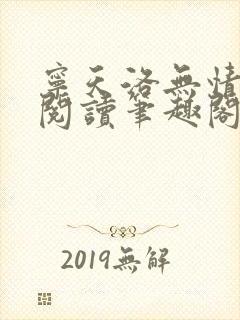 寧天洛無情
閱讀筆趣閣
2019無解